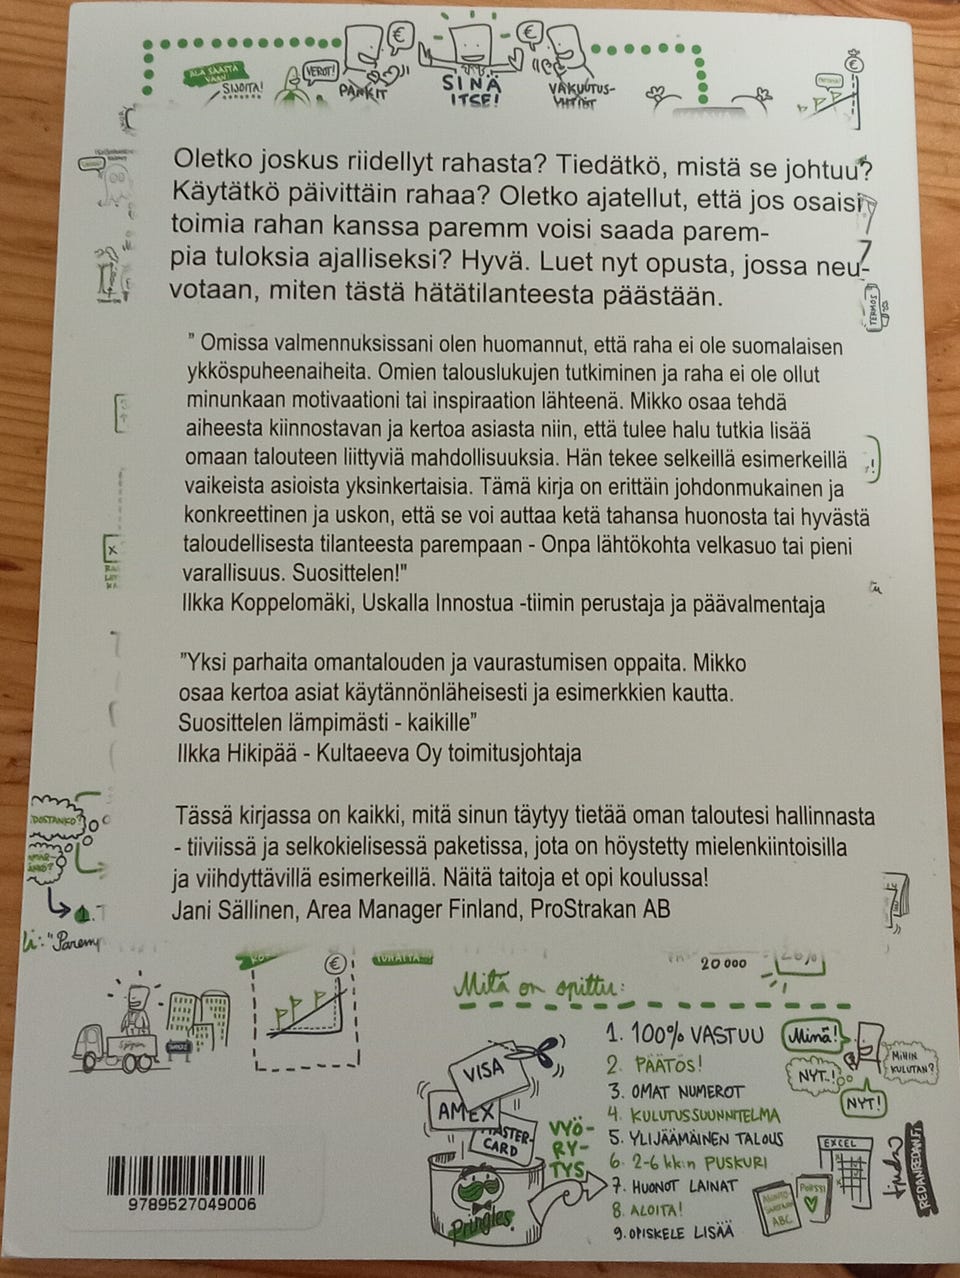 €
€
€
ÄLÄ SÄÄSTÄ
VAAN
SIJOITA!
VEROT!
PANKIT
SINÄ
ITSE!
VAKUUTUS-
YHTIÖT
Oletko joskus riidellyt rahasta? Tiedätkö, mistä se johtuu?
Käytätkö päivittäin rahaa? Oletko ajatellut, että jos osaisi
toimia rahan kanssa paremm voisi saada parem-
pia tuloksia ajalliseksi? Hyvä. Luet nyt opusta, jossa neu-
votaan, miten tästä hätätilanteesta päästään.
TERMOS
” Omissa valmennuksissani olen huomannut, että raha ei ole suomalaisen
ykköspuheenaiheita. Omien talouslukujen tutkiminen ja raha ei ole ollut
minunkaan motivaationi tai inspiraation lähteenä. Mikko osaa tehdä
aiheesta kiinnostavan ja kertoa asiasta niin, että tulee halu tutkia lisää
omaan talouteen liittyviä mahdollisuuksia. Hän tekee selkeillä esimerkeillä
vaikeista asioista yksinkertaisia. Tämä kirja on erittäin johdonmukainen ja
konkreettinen ja uskon, että se voi auttaa ketä tahansa huonosta tai hyvästä
taloudellisesta tilanteesta parempaan - Onpa lähtökohta velkasuo tai pieni
varallisuus. Suosittelen!"
Ilkka Koppelomäki, Uskalla Innostua -tiimin perustaja ja päävalmentaja
”Yksi parhaita omantalouden ja vaurastumisen oppaita. Mikko
osaa kertoa asiat käytännönläheisesti ja esimerkkien kautta.
Suosittelen lämpimästi - kaikille”
Ilkka Hikipää - Kultaeeva Oy toimitusjohtaja
Tässä kirjassa on kaikki, mitä sinun täytyy tietää oman taloutesi hallinnasta
- tiiviissä ja selkokielisessä paketissa, jota on höystetty mielenkiintoisilla
ja viihdyttävillä esimerkeillä. Näitä taitoja et opi koulussa!
Jani Sällinen, Area Manager Finland, ProStrakan AB
OSTANKO?
1.
li: "Paremp
€
20 000
Mitä on opittu:
1. 100% VASTUU
2. PÄÄTÖS!
3. OMAT NUMEROT
4. KULUTUSSUUNNITELMA
5. YLIJÄÄMÄINEN TALOUS
6. 2-6 kk:n PUSKURI
7. HUONOT LAINAT
8. ALOITA!
9. OPISKELE LISÄÄ
Minä!
MIHIN
KULUTAN?
NYT..!
NYT!
VISA
AMEX
MASTER-
CARD
VYÖ-
RY-
TYS
Pringles
EXCEL
PÖRSSI
ABC
REDANREDAN.FI
9789527049006